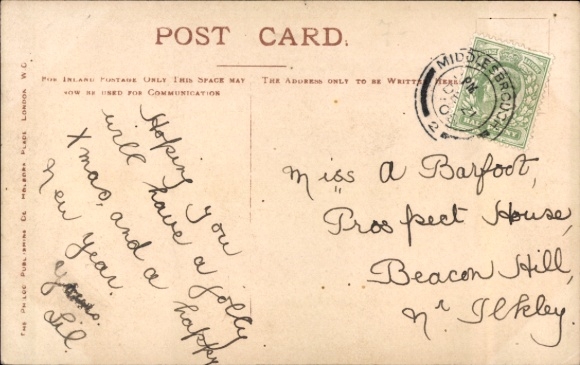 POST CARD.
FOR INLAND POSTAGE ONLY THIS SPACE MAY
NOW BE USED FOR COMMUNICATION
THE ADDRESS ONLY TO BE WRITTEN HERE
THE PHILCO PUBLISHING CO. HOLBORN PLACE, LONDON W.C.
MIDDLESBROUGH
2
Hoping you
will have a jolly
Xmas, and a happy
New Year.
Yours.
Lil.
Miss A Barfoot,
Prospect House,
Beacon Hill,
Nr Ilkley.